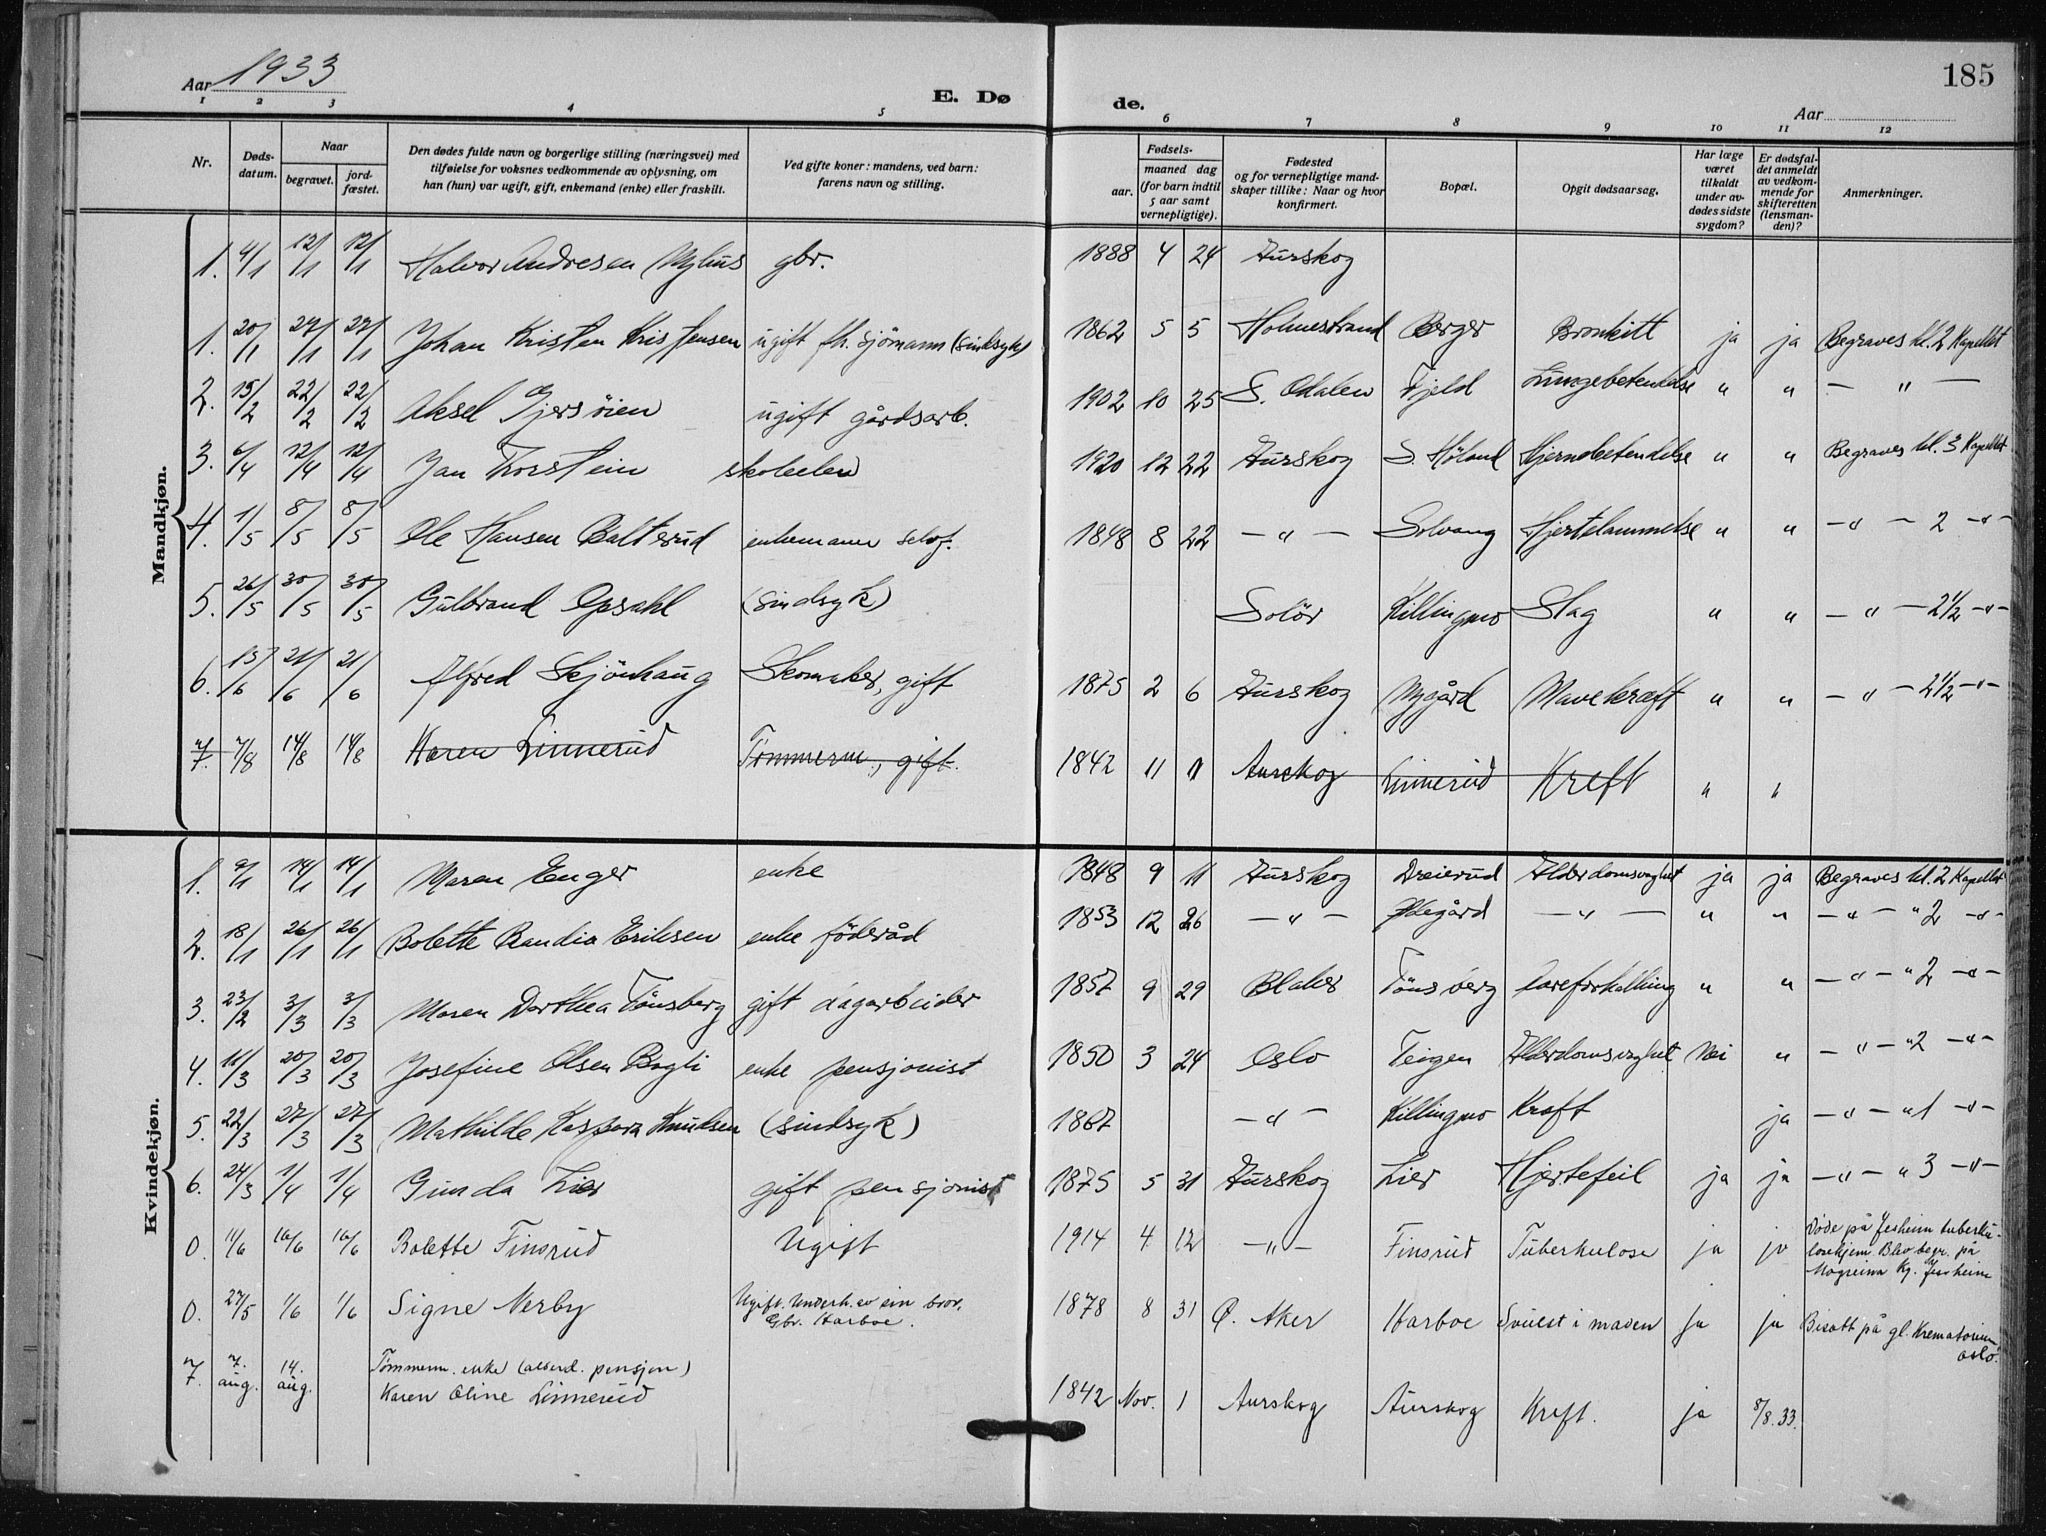 Aar 1933
E. Dø de.
185
Aar
1 2 3 4 5 6 7 8 9 10 11 12
Nr.
Døds-datum.
Naar
begravet.
jord-fæstet.
Den dødes fulde navn og borgerlige stilling (næringsvei) med tilføielse for voksnes vedkommende av oplysning, om han (hun) var ugift, gift, enkemand (enke) eller fraskilt.
Ved gifte koner: mandens, ved barn: farens navn og stilling.
Fødsels-
aar.
maaned dag (for barn indtil 5 aar samt vernepligtige).
Fødested og for vernepligtige mand-skaper tillike: Naar og hvor konfirmert.
Bopæl.
Opgit dødsaarsag.
Har læge været tilkaldt under av-dødes sidste sygdom?
Er dødsfal-det anmeldt av vedkom-mende for skifteretten (lensman-den)?
Anmerkninger.
Mandkjøn.
1. 4/1 12/1 12/1 Halvor Andresen Myhus gbr. 1888 4 24 Aurskog
1. 20/1 27/1 27/1 Johan Kristen Kristensen ugift fh. sjömann (sindsyk) 1862 5 5 Holmestrand Berger Bronkitt ja ja Begraves kl. 2 Kapellet
2. 15/2 22/2 22/2 Aksel Gjersöien ugift gårdsarb. 1902 10 25 S. Odalen Fjeld Lungebetendelse " " — " —
3. 6/4 12/4 12/4 Jan Torstein skoleelev 1920 12 22 Aurskog S. Höland Hjernebetendelse " " Begraves kl. 3 Kapellet
4. 1/5 8/5 8/5 Ole Hansen Balterud enkemann selvf. 1848 8 22 — " — Solvang Hjertelammelse " " — " — 2 — " —
5. 26/5 30/5 30/5 Gulbrand Opsahl (sindsyk) Solör Killingmo Slag " " — " — 2 1/2 — " —
6. 15/6 21/6 21/6 Alfred Skjönhaug Skomaker, gift 1875 2 6 Aurskog Nygård Mavekræft " " — " — 2 1/2 — " —
7. 7/8 14/8 14/8 Karen Linnerud Tømmerm., gift. 1842 11 11 Aurskog Linnerud Kreft " "
Kvindekjøn.
1. 9/1 14/1 14/1 Maren Enger enke 1848 9 11 Aurskog Dreierud Alderdomsvaghet ja ja Begraves kl. 2 Kapellet
2. 18/1 26/1 26/1 Bolette Randia Eriksen enke föderåd 1853 12 26 — " — Ødegård — " — " " — " — " 2 — " —
3. 23/2 3/3 3/3 Maren Dorthea Tönsberg gift dagarbeider 1857 9 29 Blaker Tönsberg Åreforkalkning " " — " — " 2 — " —
4. 11/3 20/3 20/3 Josefine Olsen Bogli enke pensjonist 1850 3 24 Oslo Teigen Alderdomsvaghet Nei " — " — " 2 — " —
5. 22/3 27/3 27/3 Mathilde Kaspara Knudsen (sindsyk) 1867 — " — Killingmo Kraft ja — " — " 1 — " —
6. 24/3 1/4 1/4 Gunda Lier gift pensjonist 1875 5 31 Aurskog Lier Hjertefeil ja ja — " — " 3 — " —
0. 11/6 16/6 16/6 Bolette Finsrud Ugift 1914 4 12 — " — Finsrud Tuberkulose ja ja Døde på Jesheim tuberku-losehjem. Blev begr. på Mogreina Kg. Jessheim
0. 27/5 1/6 1/6 Signe Nerby Ugift. Underh. av sin bror. Gbr. Harboe. 1878 8 31 Ø. Aker Harboe Svulst i maven ja ja Bisatt på gl. Krematorium Oslo.
7. 7. aug. 14. aug. Tømmerm. enke (alderd. pensjon)
Karen Oline Linnerud 1842 Nov. 1 Aurskog Aurskog Kreft. ja 8/8.33.